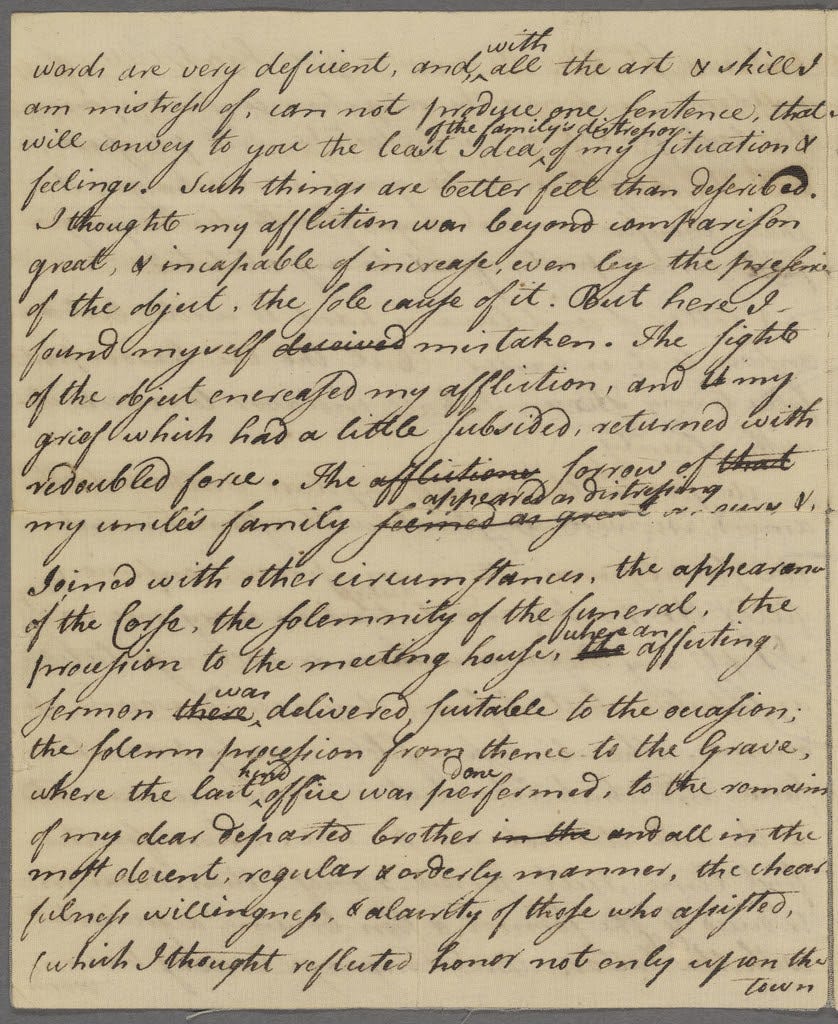 with
words are very deficient, and all the art & skill I
am mistress of, can not produce one sentence, that
of the family's distress or
will convey to you the least Idea of my situation &
feelings. Such things are better felt than described.
I thought my affliction was beyond comparison
great, & incapable of increase, even by the presence
of the object, the sole cause of it. But here I
found myself deceived mistaken. The sight
of the object encreased my affliction, and my
grief which had a little subsided, returned with
redoubled force. The afflictions sorrow of that
appeared as distressing
my uncle's family seemed as great
Joined with other circumstances, the appearance
of the Corse, the solemnity of the funeral, the
where an
procession to the meeting house, the affecting
was
sermon there delivered, suitable to the occasion;
the solemn procession from thence to the Grave,
kind done
where the last office was performed, to the remains
of my dear departed brother in the and all in the
most decent, regular & orderly manner, the chear
fulness willingness, & alacrity of those who assisted,
(which I thought reflected honor not only upon the
town